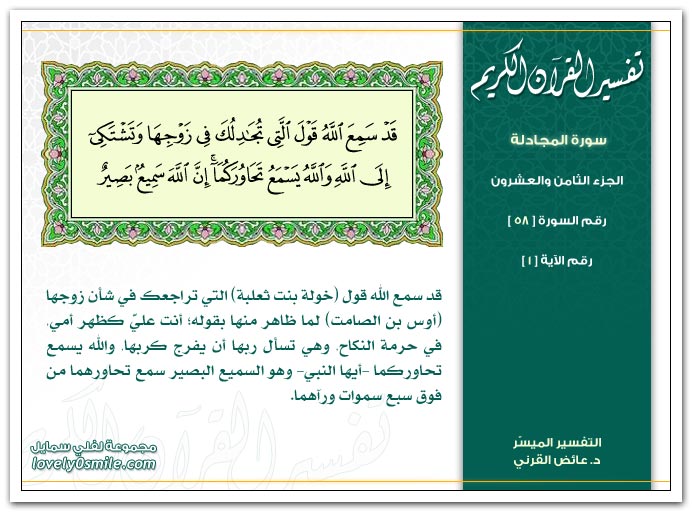 تفسير القرآن الكريم
سورة المجادلة
الجزء الثامن والعشرون
رقم السورة [ ٥٨ ]
رقم الآية [ ١ ]
قَدْ سَمِعَ ٱللَّهُ قَوْلَ ٱلَّتِي تُجَٰدِلُكَ فِي زَوْجِهَا وَتَشْتَكِيٓ
إِلَى ٱللَّهِ وَٱللَّهُ يَسْمَعُ تَحَاوُرَكُمَآۚ إِنَّ ٱللَّهَ سَمِيعُۢ بَصِيرٌ
قد سمع الله قول (خولة بنت ثعلبة) التي تراجعك في شأن زوجها
(أوس بن الصامت) لما ظاهر منها بقوله؛ أنت عليّ كظهر أمي،
في حرمة النكاح، وهي تسأل ربها أن يفرج كربها، والله يسمع
تحاوركما -أيها النبي- وهو السميع البصير سمع تحاورهما من
فوق سبع سموات ورآهما.
تفسير القرآن الكريم
التفسير الميسّر
د. عائض القرني
مجموعة لفلي سمايل
lovely0smile.com